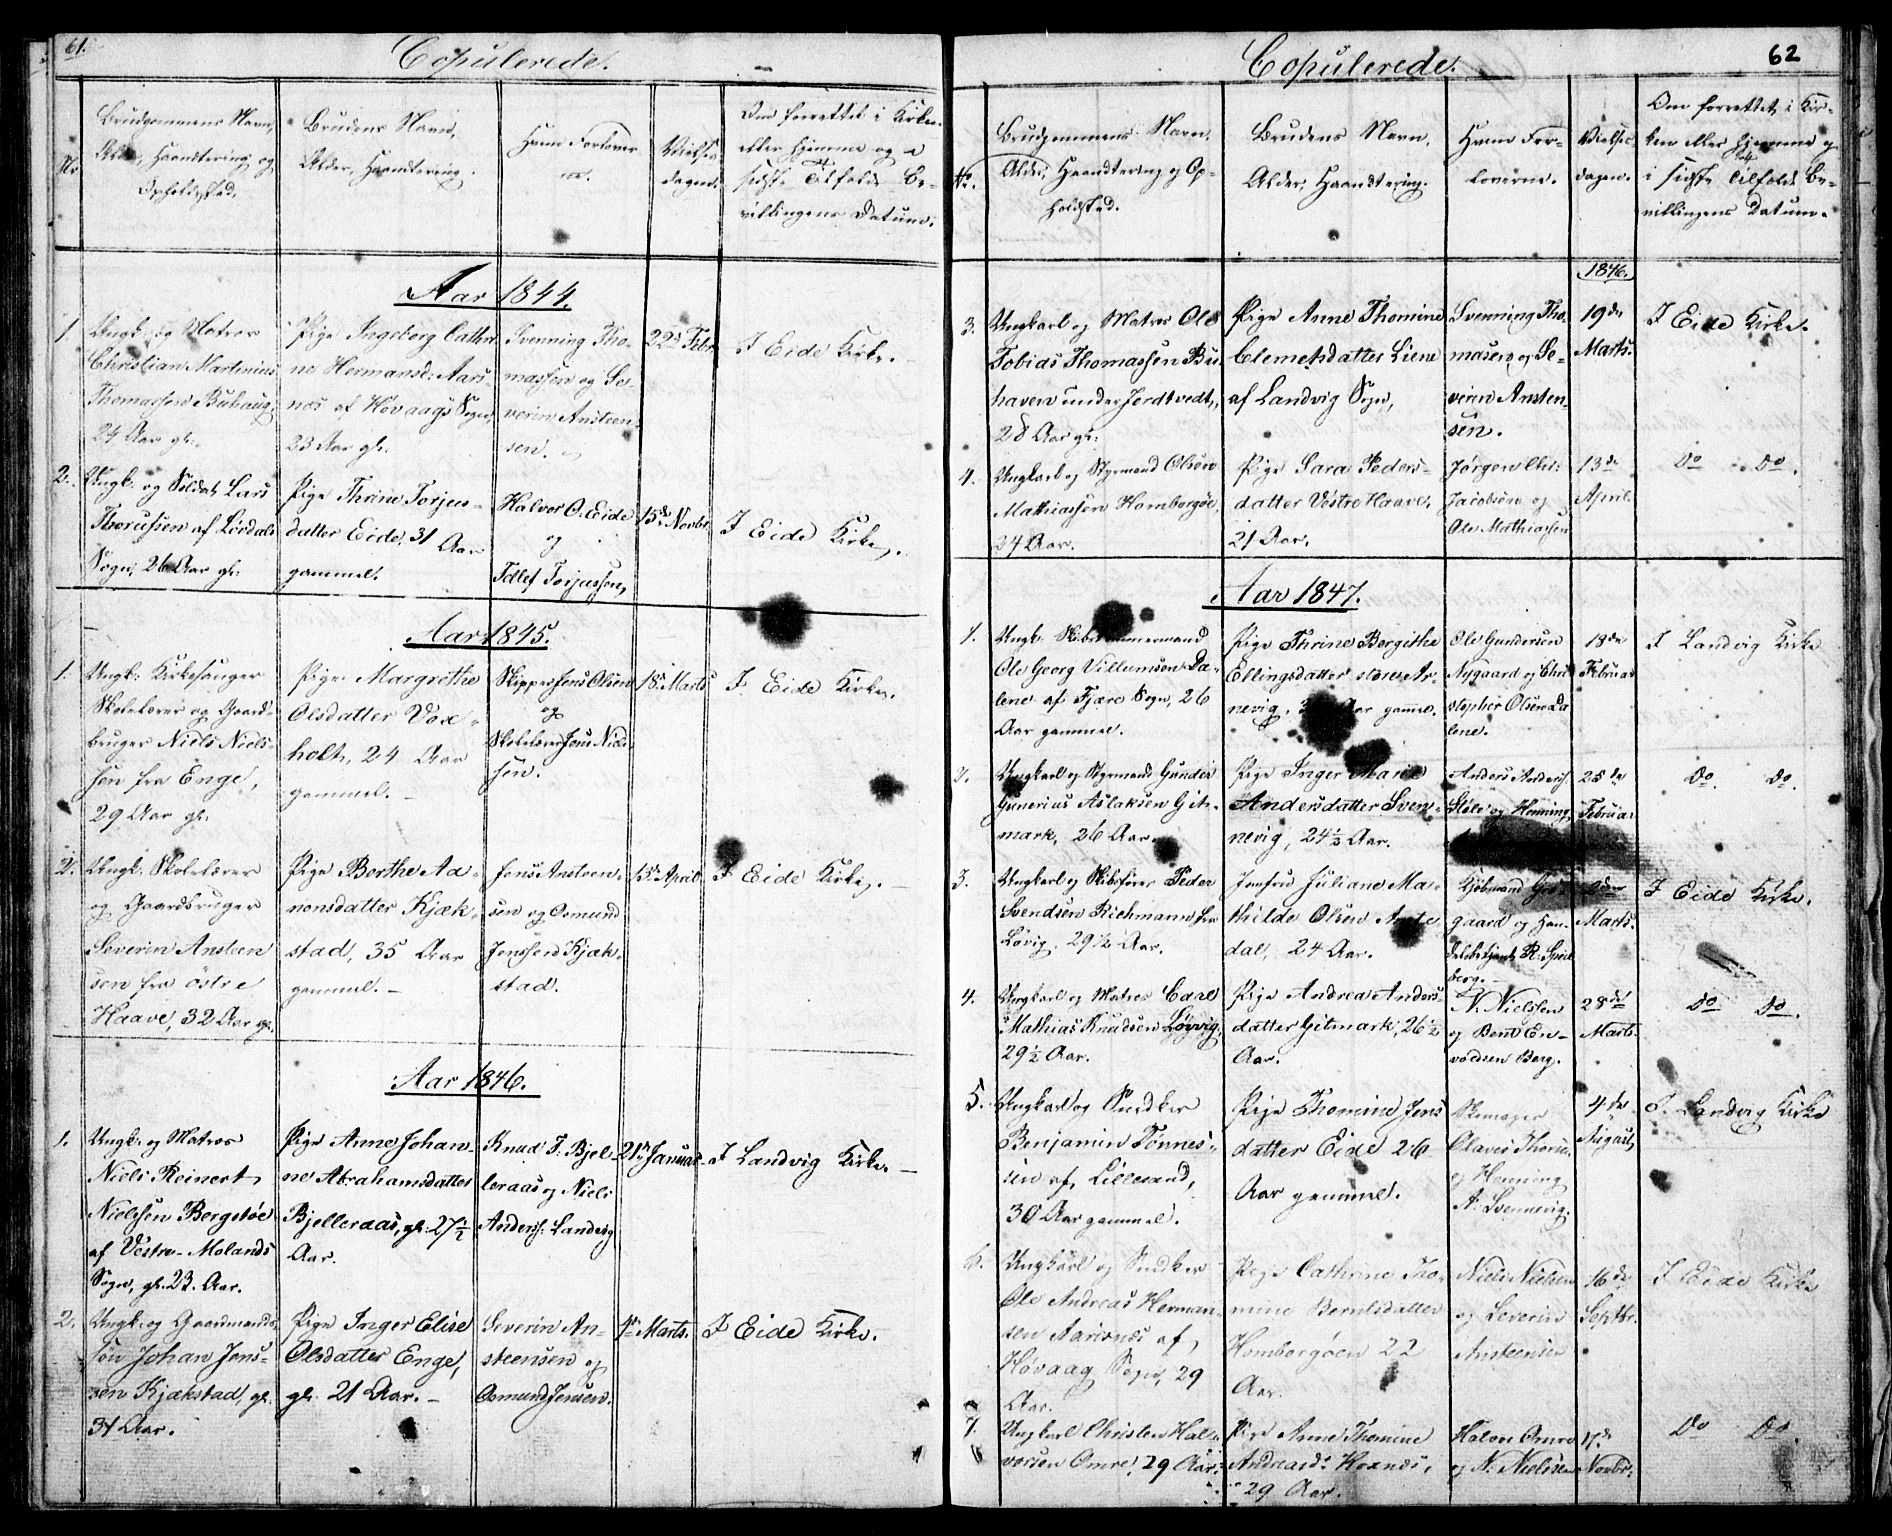 61.
Copulerede.
No
Brudgommens Navn,
Alder, Haandtering og
Opholdssted.
Brudens Navn,
Alder, Haandtering.
Hvem Forlover-
ne.
Vielses
dagen.
Om forrettet i Kirken
eller hjemme og i
sidste Tilfælde Be-
villingens Datum.
Aar 1844.
1.
Ungk: og Matros
Christian Martinius
Thomassen Buhaug,
24 Aar gl:
Pige Ingeborg Cathri
ne Hermansd: Aars-
næs af Høvaags Sogn,
23 Aar gl.
Svenning Tho-
massen og Se-
verin Ansteen-
sen.
22d Febr.
I Eide Kirke.
2.
Ungk: og Soldat Lars
Thorussen af
Sogn, 26 Aar gl:
Pige Thrine Torjus-
datter Eide, 31 Aar
gammel.
Halvor O. Eide
og
Tellef Torjussen,
15de Novbr.
I Eide Kirke.
Aar 1845.
1.
Ungk: Kirkesanger
Skolelærer og Gaard-
bruger Niels Niels-
sen fra Enge,
29 Aar gl:
Pige Margrethe
Olsdatter Vox-
holt, 24 Aar
gammel. –
Skipper Jens Olsen
og
Skolelærer Jens Niel-
sen.
18d Marts
I Eide Kirke.
2.
Ungk: Skolelærer
og Gaardbruger
Severin Ansteen
sen fra østre
Haave, 32 Aar gl.
Pige Berthe Aa-
nonsdatter Kjæk-
stad, 35 Aar
gammel. –
Jens Ansteen-
sen og Osmund
Jenssen Kjæk-
stad.
15de April
I Eide Kirke. –
Aar 1846.
1.
Ungk: og Matros
Niels Reinert
Nielssen Bergstøe
af Vestre-Molands
Sogn, gl. 23 Aar.
Pige Anne Johan-
ne Abrahamsdatter
Bjelleraas, gl. 27½
Aar.
Knud T. Bjel-
leraas og Niels
Anderss: Landvig
21de Januar
I Landvig Kirke. –
2.
Ungk: og Gaardmands-
søn Johan Jens-
sen Kjækstad, gl.
31 Aar.
Pige Inger Elise
Olsdatter Enge,
gl. 21 Aar. –
Severin An-
steensen og
Osmund Jensen.
4de Marts.
I Eide Kirke.
Copulerede.
62
No.
Brudgommens Navn,
Alder, Haandtering og Op-
holdssted.
Brudens Navn,
Alder, Haandtering.
Hvem For-
loverne.
Vielses-
dagen.
Om forrettet i Kir-
ken eller hjemme og
i sidste Tilfælde Be-
villingens Datum.
1846.
3.
Ungkarl og Matros Ole
Tobias Thomassen Bu-
haven under Jordtvedt,
28 Aar gl:
Pige Anne Thomine
Clemetsdatter Liene
af Landvig Sogn,
Svenning Tho-
masen og Se-
verin Ansten-
sen.
19de
Marts.
I Eide Kirke.
4.
Ungkarl og Styrmand Olsen
Mathiassen Homborgøe,
24 Aar.
Pige Sara Peders-
datter Vestre Haave,
21 Aar.
Jørgen Chr:
Jacobsen og
Ole Mathiassen
13de
April.
Do Do.
Aar 1847.
1.
Ungk: Skibstømmermand
Ole Georg Villumsen Da-
lene af Fjære Sogn, 26
Aar gammel.
Pige Thrine Bergithe
Ellingsdatter store Ar-
nevig, Aar gamel.
Ole Gundersen
Nygaard og Chri
stopher Olsen Da
lene.
18de
Februar
I Landvig Kirke
2.
Ungkarl og Styrmand Gunder
Gunerius Aslaksen Git-
mark, 26 Aar.
Pige Inger Marie
Andersdatter Sven-
nevig, 24½ Aar.
Anders Anders:
Støle og Henning
25de
Februar
Do. Do.
3.
Ungkarl og Skibsfører Peder
Svendsen Richmann fra
Løvig, 29½ Aar.
Jomfru Juliane Ma-
thilde Olsen
dal, 24 Aar.
Kjøbmand
gaard og Han-
delsbetjent R. Spil
berg.
Marts.
I Eide Kirke.
4.
Ungkarl og Matros Carl
Mathias Knudsen Løgvig,
29½ Aar.
Pige Andrea Anders-
datter Gitmark, 26½
Aar.
N. Nielssen
og Bent En-
voldsen Berg.
28de
Marts.
Do Do.
5.
Ungkarl og Snedker
Benjamin Tønnes-
sen af Lillesand,
30 Aar gammel.
Pige Thomine Jens
datter Eide 26
Aar gammel.
Skomager
Olaves Thorsen
og Henning
A. Svennevig.
4de
August,
I Landvig Kirke
6.
Ungkarl og Snedker
Ole Andreas Herman-
sen Aarsnæs af
Høvaag Sogn, 29
Aar.
Pige Cathrine Tho-
mine Berntsdatter
Homborgøen 22
Aar.
Niels Nielsen
og Severin
Ansteensen
16de
Septbr.
I Eide Kirke
7.
Ungkarl Christen Hal-
vorsen Omre, 29 Aar.
Pige Anne Thomine
Andreasd: Hoxnæs,
29 Aar.
Halvor Omre
og N: Nielssen
17de
Novbr.
Do Do.